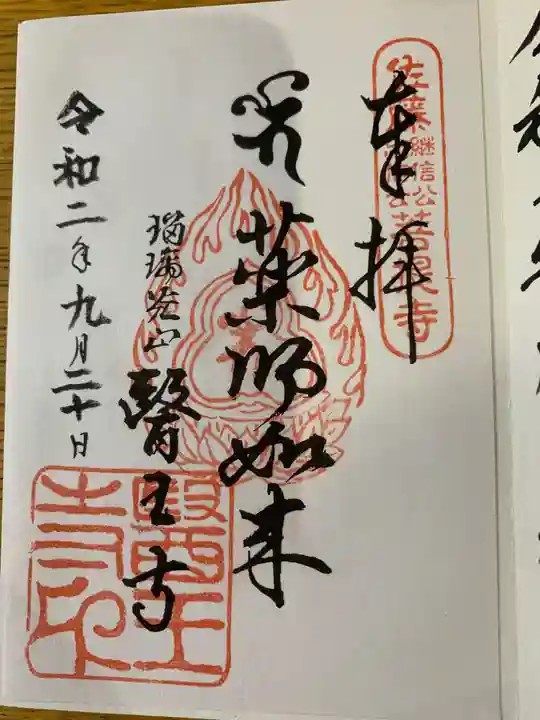 奉拝
佐藤継信公
菩提寺
薬師如来
瑠璃光山
醫王寺
醫王寺印
令和二年九月二十日